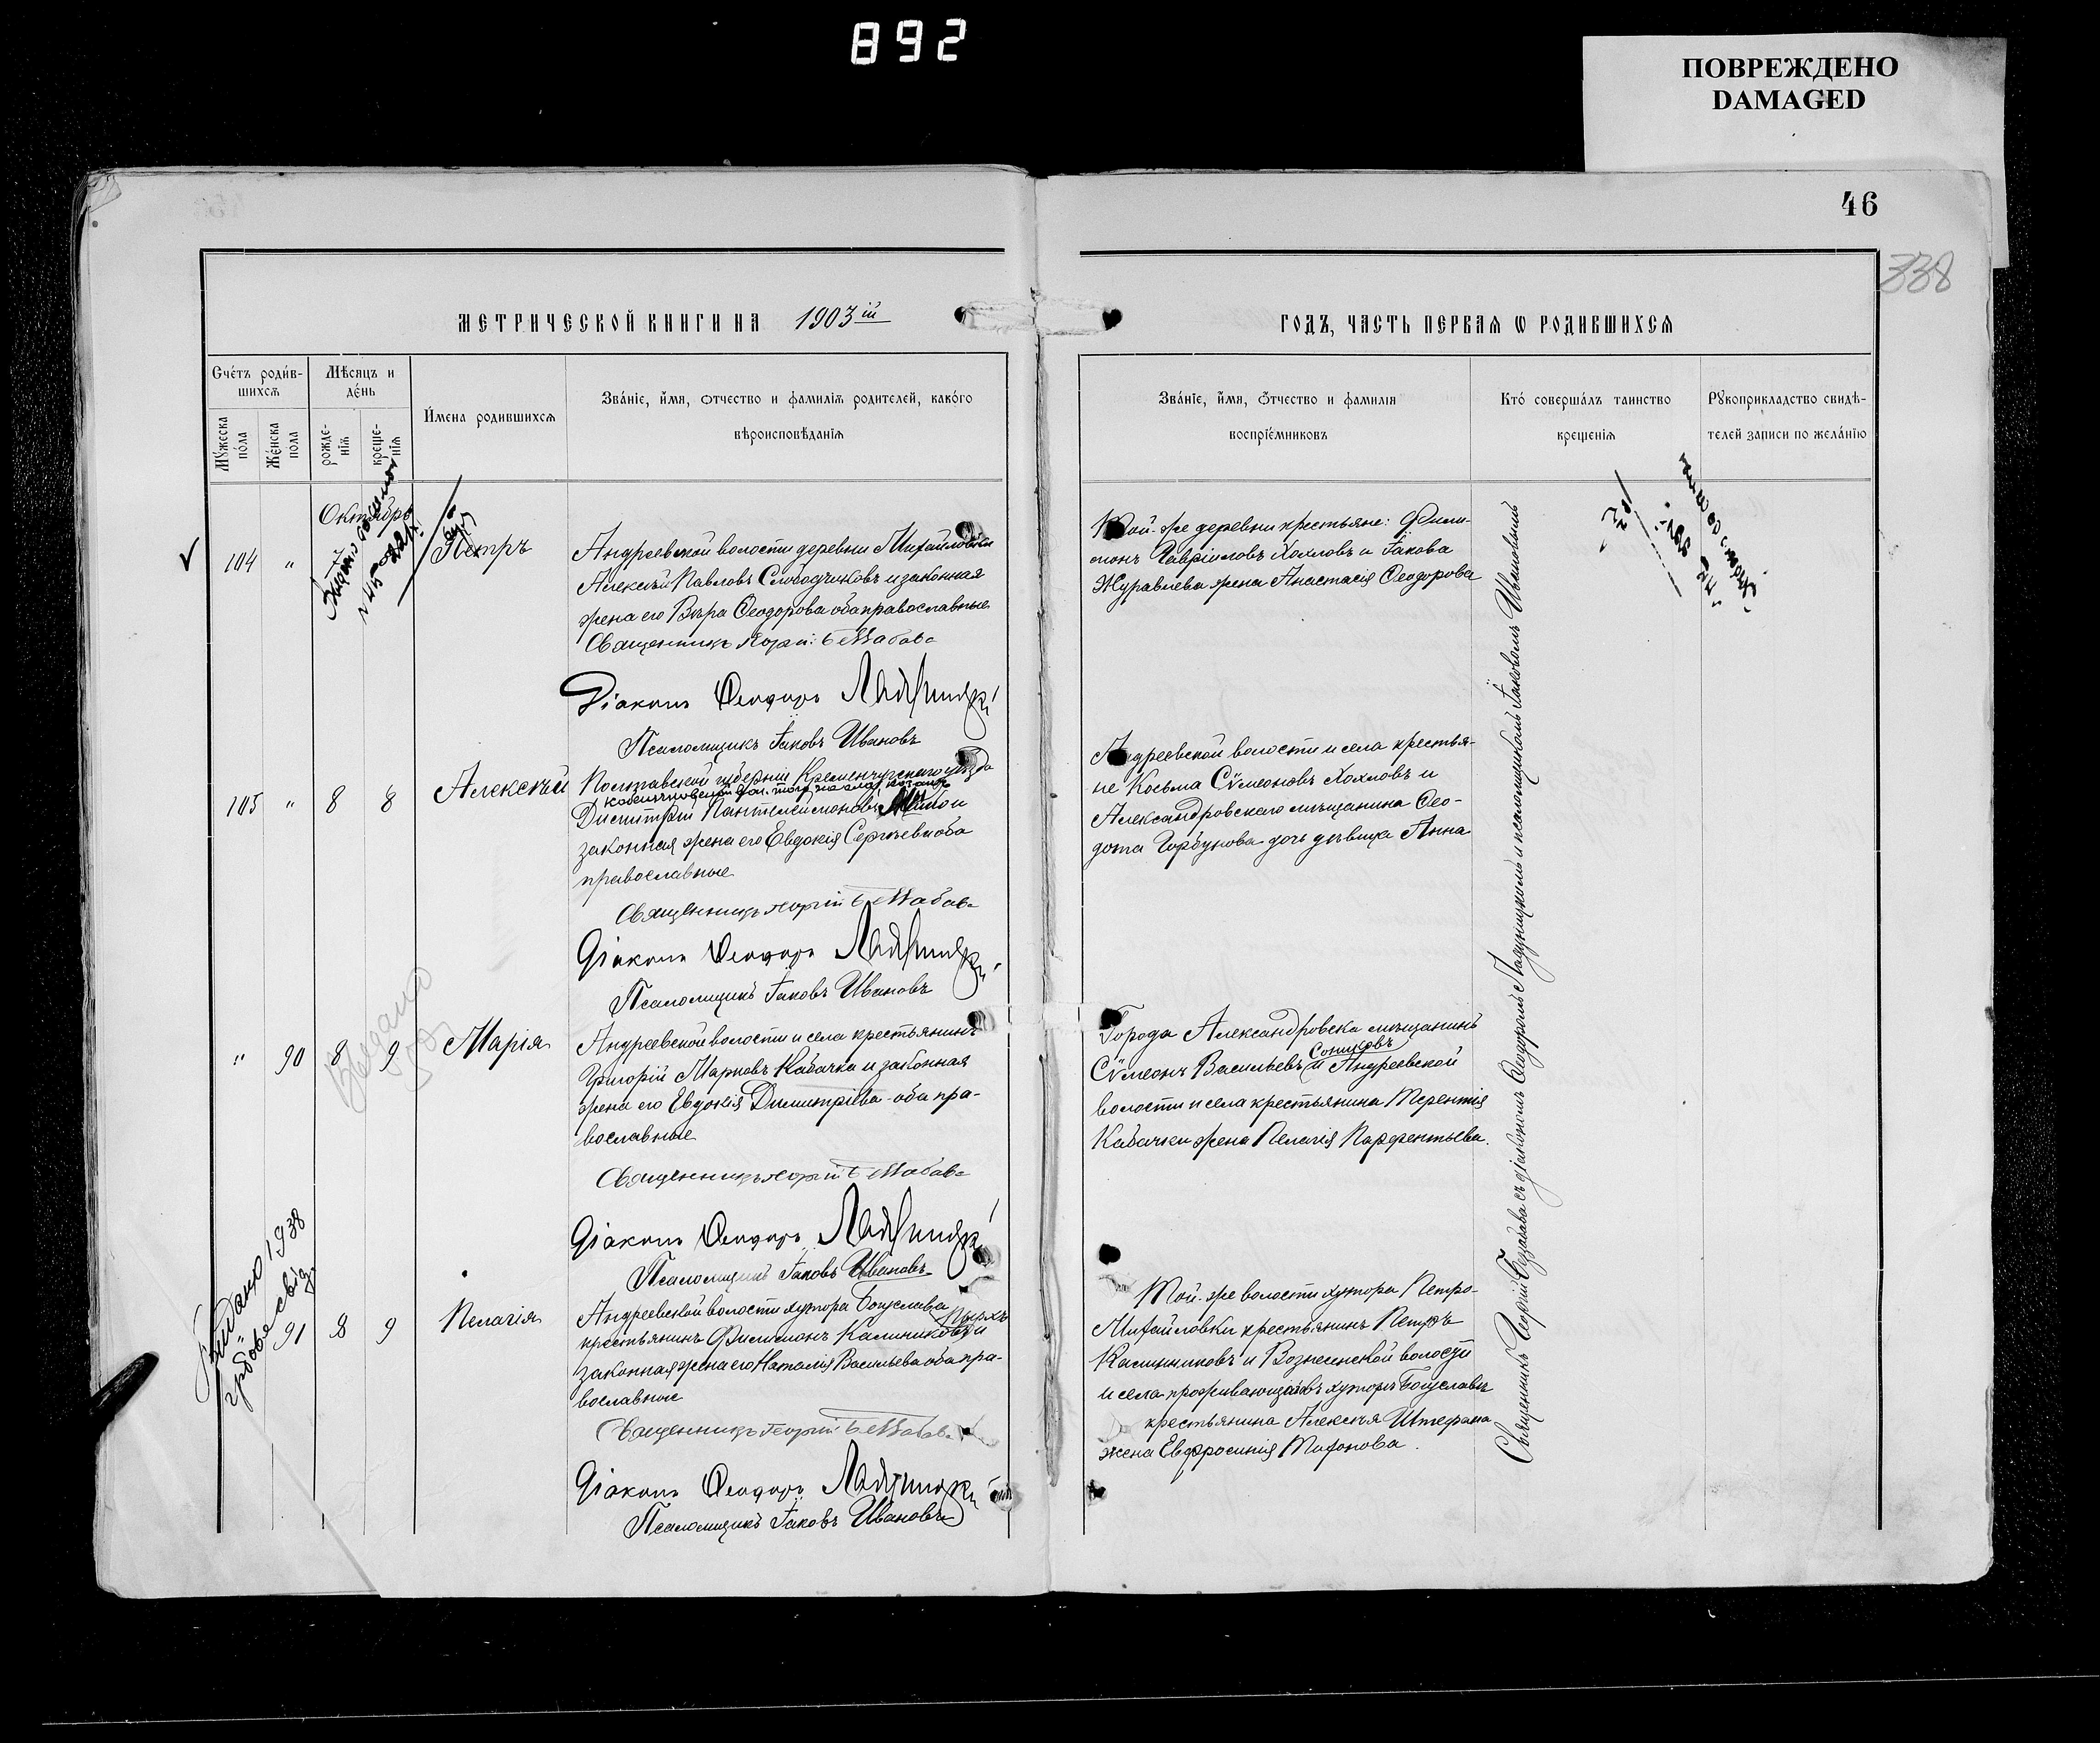 892
ПОВРЕЖДЕНО
DAMAGED
46
338
МЕТРИЧЕСКОЙ КНИГИ НА 1903 ій
ГОДЪ, ЧАСТЬ ПЕРВАЯ Ѡ РОДИВШИХСЯ
Счетъ родив-
шихся
Мѣсяцъ и
день
Мужеска
пола
Женска
пола
рожде-
нія
креще-
нія
Имена родившихся
Званіе, имя, отчество и фамилія родителей, какого
вѣроисповѣданія
Званіе, имя, отчество и фамилія
воспріемниковъ
Кто совершалъ таинство
крещенія
Рукоприкладство свидѣ-
телей записи по желанію
Октябрь
104 " 7 Петръ
Андреевской волости деревни Михайловки
Алексѣй Павловъ Слободчиковъ и законная
жена его Вѣра Ѳеодорова оба православные
Священникъ Георгій
Діаконъ Ѳеодоръ
Псаломщикъ Іаковъ Ивановъ
Той-же деревни крестьяне: Фили-
монъ Гавріиловъ Хохловъ и Іакова
Журавлева жена Анастасія Ѳеодорова
105 " 8 8 Алексѣй
Полтавской губерніи Кременчугскаго уѣзда
Димитрій Пантелеимоновъ
законная жена его Евдокія Сергѣева оба
православные
Священникъ Георгій
Діаконъ Ѳеодоръ
Псаломщикъ Іаковъ Ивановъ
Андреевской волости и села крестья-
не Косьма Сѵмеоновъ Хохловъ и
Александровскаго мѣщанина Ѳео-
дота Горбунова дочь дѣвица Анна
" 90 8 9 Марія
Андреевской волости и села крестьянинъ
Григорій Марковъ Кабачка и законная
жена его Евдокія Димитріева оба пра-
вославные
Священникъ Георгій
Діаконъ Ѳеодоръ
Псаломщикъ Іаковъ Ивановъ
Города Александровска мѣщанинъ
Сѵмеонъ Васильевъ Сошковъ и Андреевской
волости и села крестьянина Терентія
Кабачки жена Пелагія Парфентьева.
91 8 9 Пелагія
Андреевской волости хутора Богуслава
крестьянинъ Филимонъ Калиниковъ и
законная жена его Наталія Васильева оба пра-
вославные
Священникъ Георгій
Діаконъ Ѳеодоръ
Псаломщикъ Іаковъ Ивановъ
Той-же волости хутора Петро-
Михайловки крестьянинъ Петръ
Калинниковъ и Вознесенской волости
и села проживающаго въ хуторѣ Богуславѣ
крестьянина Алексѣя Штефана
жена Евфросинія
Священникъ Георгій съ діакономъ Ѳеодоромъ и псаломщикомъ Іаковомъ Ивановымъ
Видано 1938